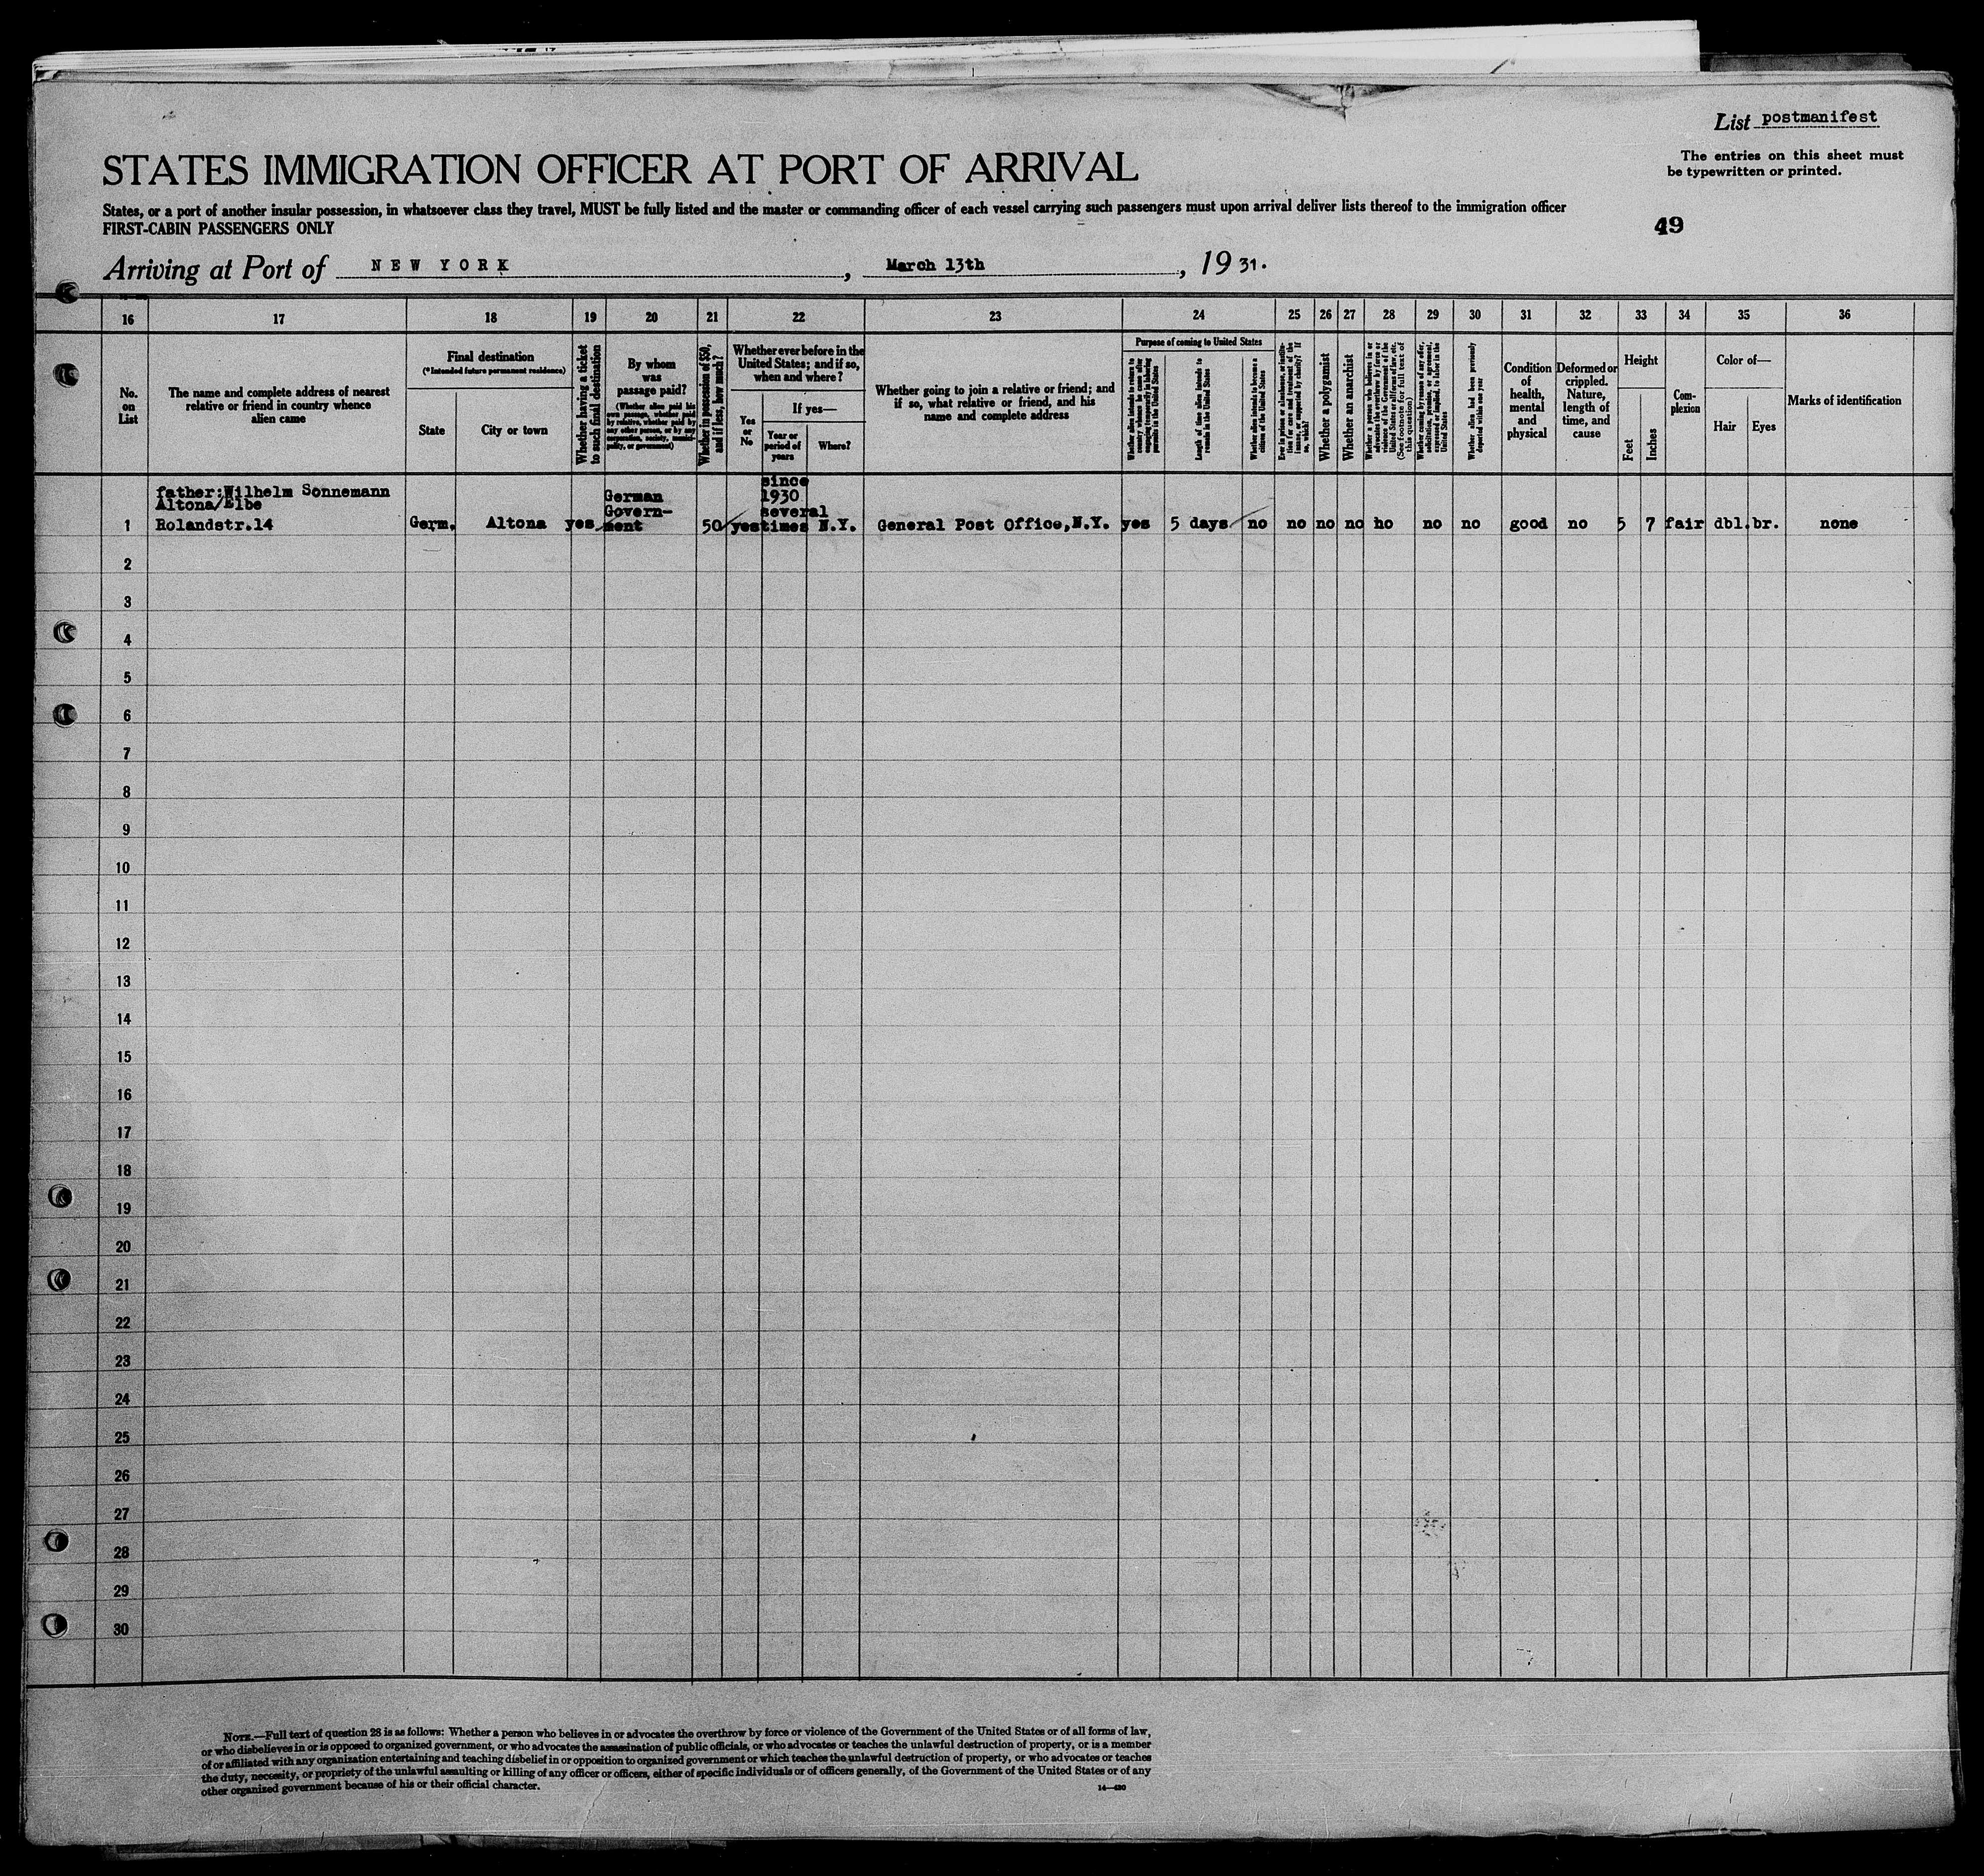 List postmanifest
The entries on this sheet must
be typewritten or printed.
STATES IMMIGRATION OFFICER AT PORT OF ARRIVAL
States, or a port of another insular possession, in whatsoever class they travel, MUST be fully listed and the master or commanding officer of each vessel carrying such passengers must upon arrival deliver lists thereof to the immigration officer
FIRST-CABIN PASSENGERS ONLY
49
Arriving at Port of NEW YORK, March 13th, 1931.
16 17 18 19 20 21 22 23 24 25 26 27 28 29 30 31 32 33 34 35 36
No.
on
List
The name and complete address of nearest
relative or friend in country whence
alien came
Final destination
(*Intended future permanent residence)
State
City or town
Whether having a ticket
to such final destination
By whom
was
passage paid?
(Whether alien paid his
own passage, whether paid
by relative, whether paid by
any other person, or by any
corporation, society, munici-
pality, or government)
Whether in possession of $50,
and if less, how much?
Whether ever before in the
United States; and if so,
when and where?
Yes
or
No
If yes—
Year or
period of
years
Where?
Whether going to join a relative or friend; and
if so, what relative or friend, and his
name and complete address
Purpose of coming to United States
Whether alien intends to return to
country whence he came after
engaging temporarily in laboring
pursuits in the United States
Length of time alien intends to
remain in the United States
Whether alien intends to become a
citizen of the United States
Ever in prison or almshouse, or institu-
tion for care and treatment of the
insane, or supported by charity? If
so, which?
Whether a polygamist
Whether an anarchist
Whether a person who believes in or
advocates the overthrow by force or
violence of the Government of the
United States or all forms of law, etc.
(See footnote for full text of
this question)
Whether coming by reason of any offer,
solicitation, promise, or agreement,
expressed or implied, to labor in the
United States
Whether alien had been previously
deported within one year
Condition
of
health,
mental
and
physical
Deformed or
crippled.
Nature,
length of
time, and
cause
Height
Feet
Inches
Com-
plexion
Color of—
Hair
Eyes
Marks of identification
father:Wilhelm Sonnemann
Altona/Elbe
1 Rolandstr.14 Germ. Altona yes German
Govern-
ment 50 yes since
1930
several
times N.Y. General Post Office,N.Y. yes 5 days no no no no no no no good no 5 7 fair dbl. br. none
2
3
4
5
6
7
8
9
10
11
12
13
14
15
16
17
18
19
20
21
22
23
24
25
26
27
28
29
30
NOTE.—Full text of question 28 is as follows: Whether a person who believes in or advocates the overthrow by force or violence of the Government of the United States or of all forms of law,
or who disbelieves in or is opposed to organized government, or who advocates the assassination of public officials, or who advocates or teaches the unlawful destruction of property, or is a member
of or affiliated with any organization entertaining and teaching disbelief in or opposition to organized government or which teaches the unlawful destruction of property, or who advocates or teaches
the duty, necessity, or propriety of the unlawful assaulting or killing of any officer or officers, either of specific individuals or of officers generally, of the Government of the United States or of any
other organized government because of his or their official character.
14—430